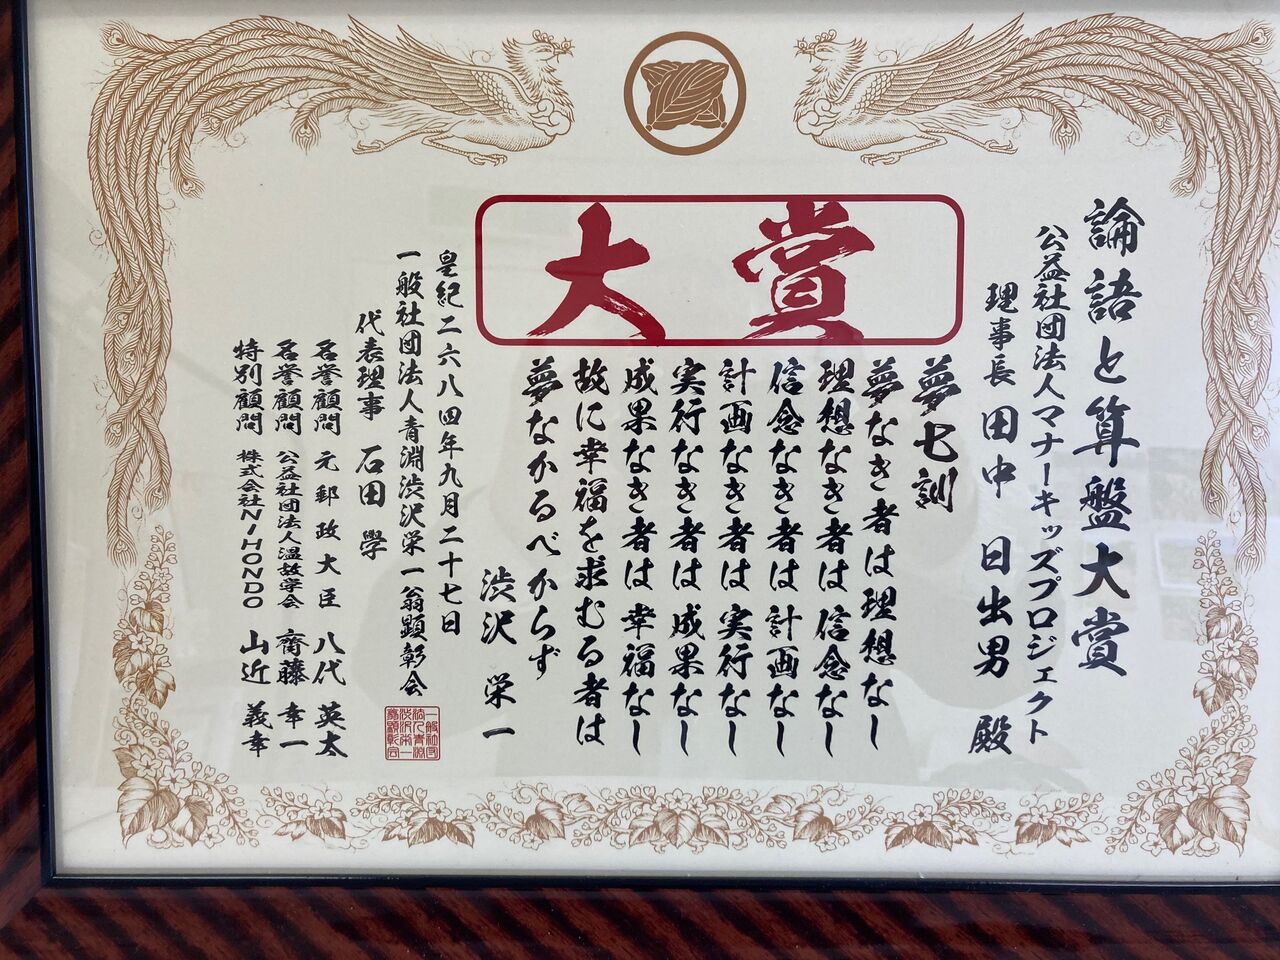 論語と算盤大賞
公益社団法人マナーキッズプロジェクト
理事長 田中 日出男 殿
大賞
夢七訓
夢なき者は理想なし
理想なき者は信念なし
信念なき者は計画なし
計画なき者は実行なし
実行なき者は成果なし
成果なき者は幸福なし
故に幸福を求むる者は
夢なかるべからず
渋沢 栄一
皇紀二六八四年九月二十七日
一般社団法人青淵渋沢栄一翁顕彰会
代表理事 石田 學
名誉顧問 元郵政大臣 八代 英太
名誉顧問 公益社団法人温故学会 齋藤 幸一
特別顧問 株式会社NIHONDO 山近 義幸
一般社団法人青淵渋沢栄一翁顕彰会